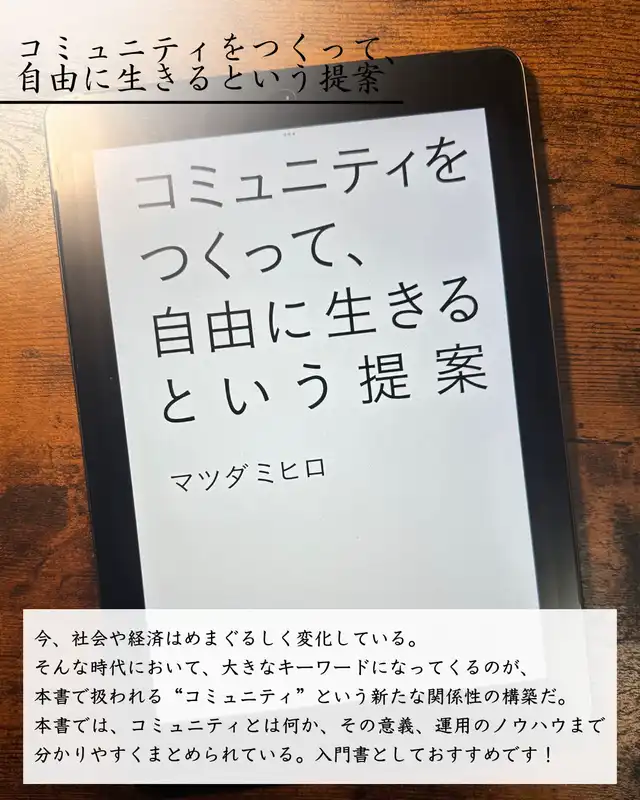 コミュニティをつくって、
自由に生きるという提案
コミュニティを
つくって、
自由に生きる
という提案
マツダミヒロ
今、社会や経済はめまぐるしく変化している。
そんな時代において、大きなキーワードになってくるのが、
本書で扱われる“コミュニティ”という新たな関係性の構築だ。
本書では、コミュニティとは何か、その意義、運用のノウハウまで
分かりやすくまとめられている。入門書としておすすめです！